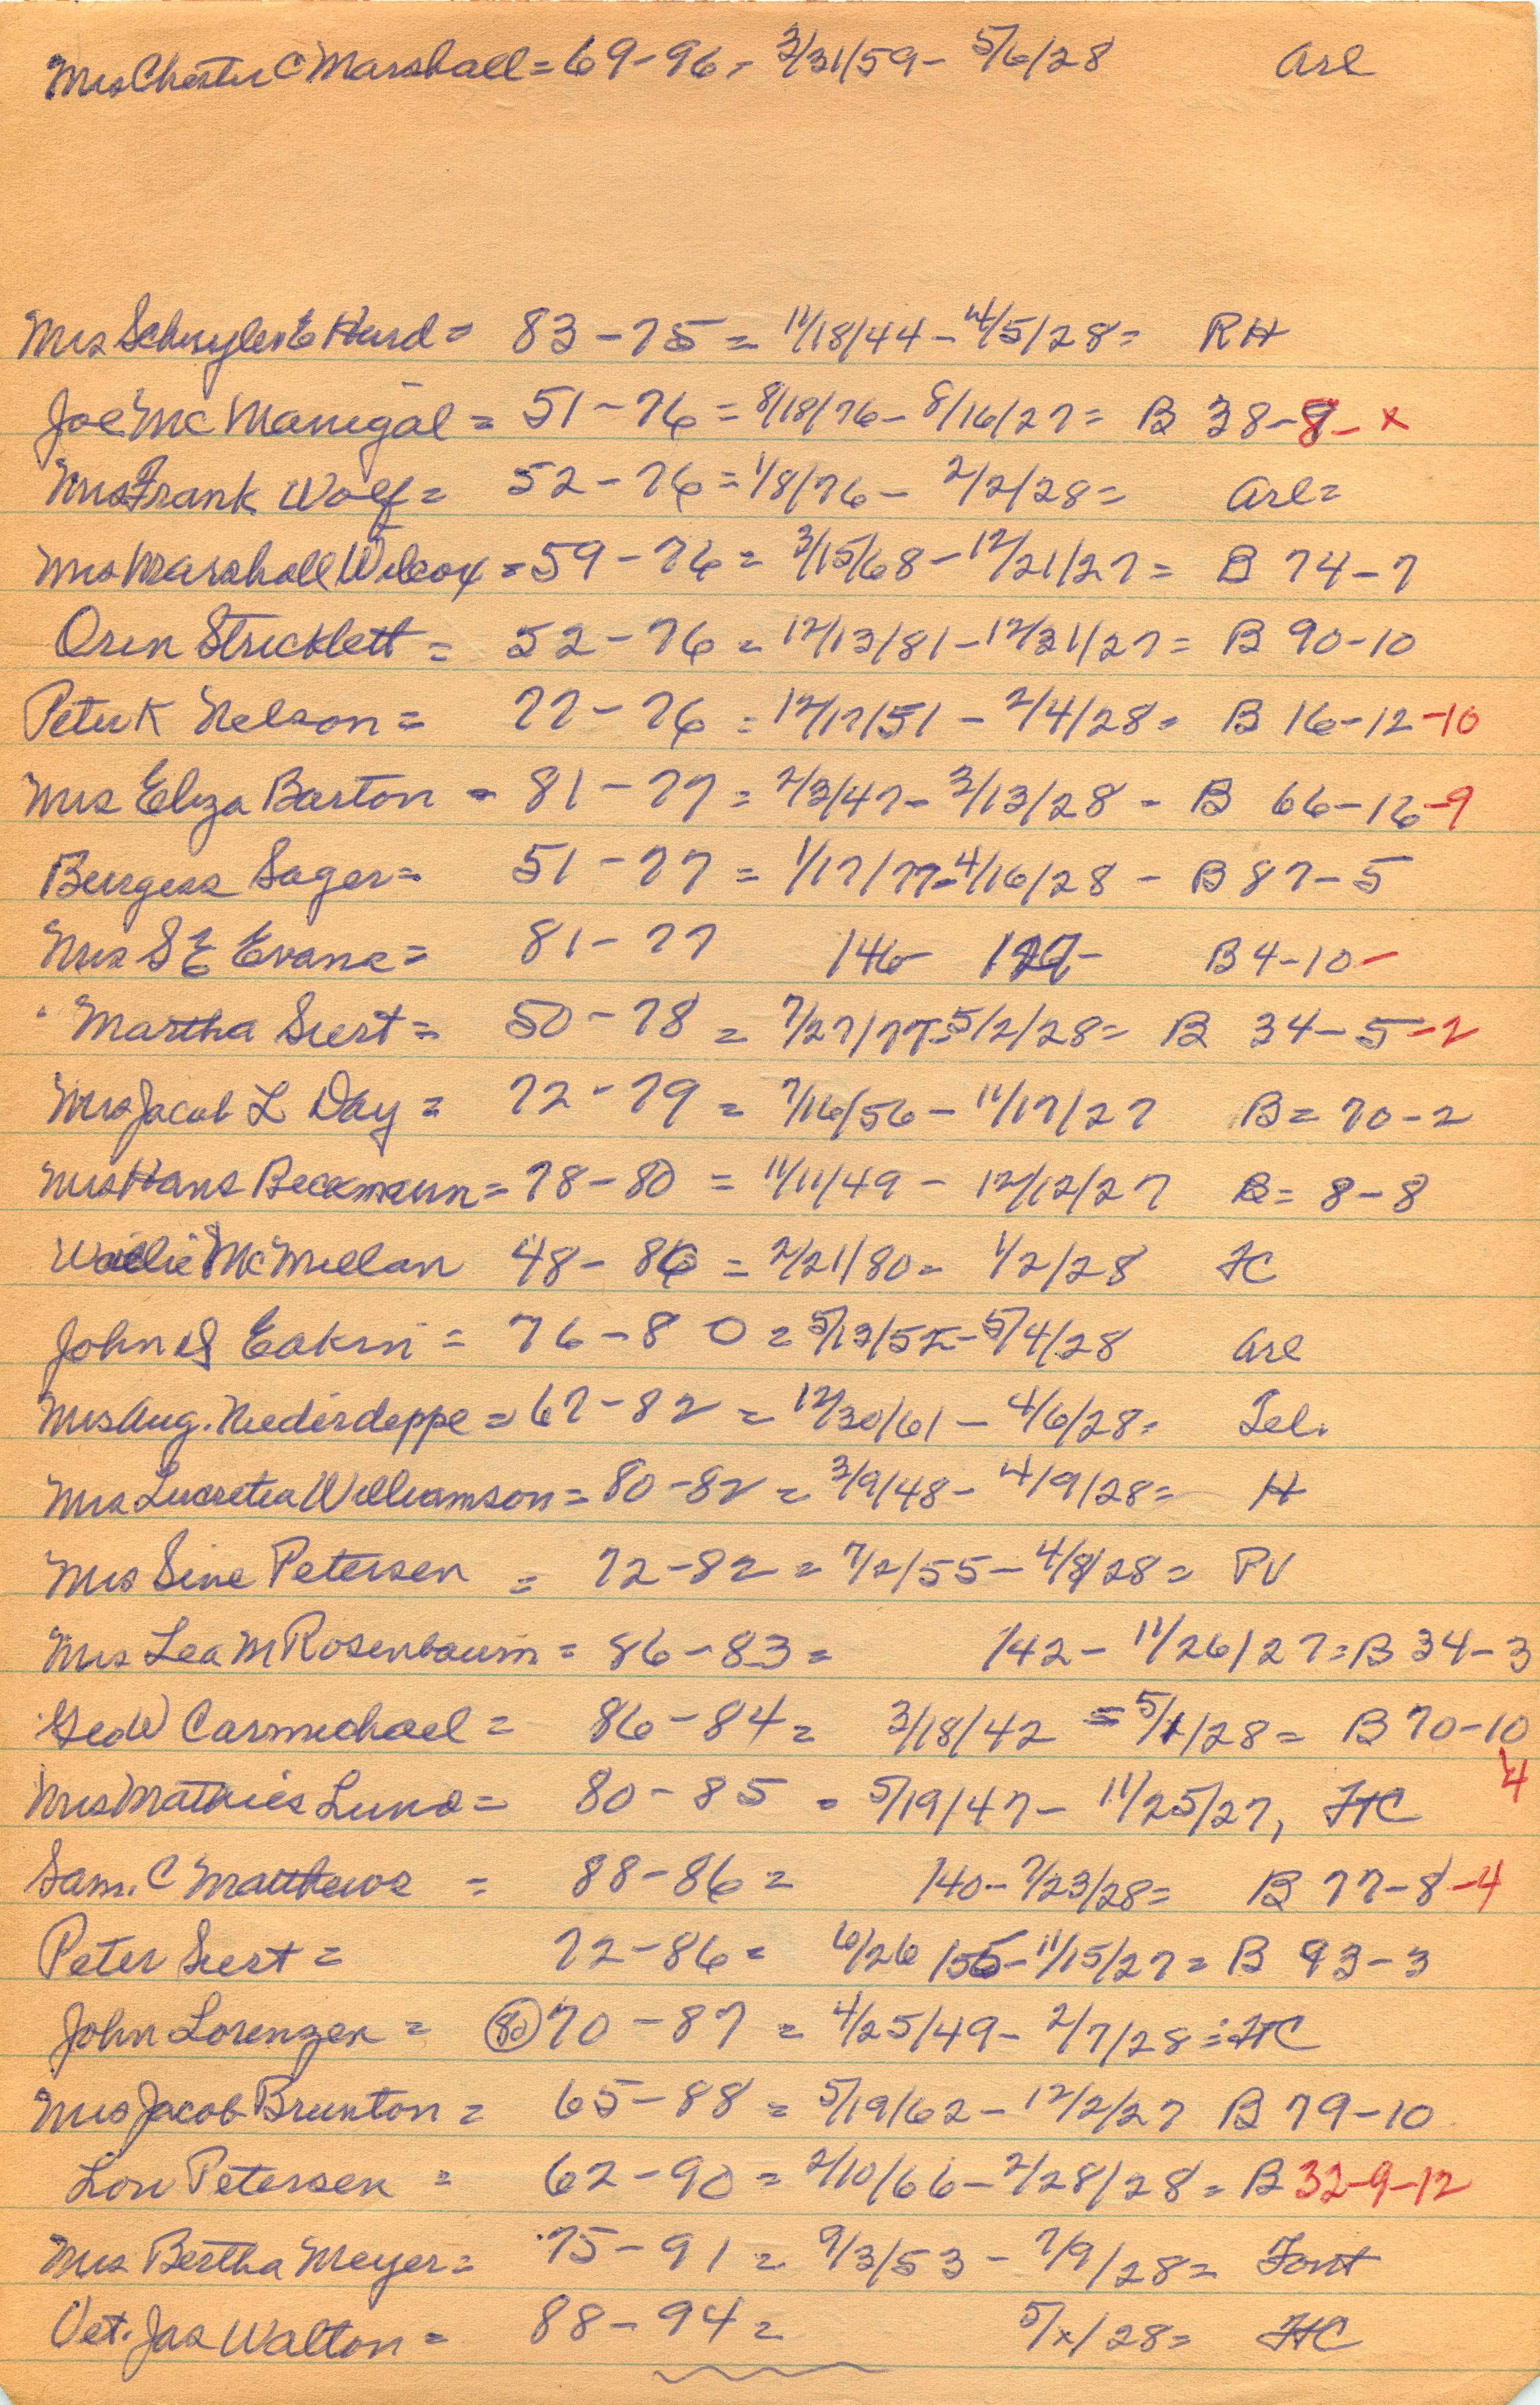 Mrs Chester C Marshall = 69-96 - 3/31/59 - 5/6/28 Arl
Mrs Schuyler E Hurd = 83-75 = 11/18/44 - 4/5/28 = RH
Joe McManigal = 51-76 = 8/18/76 - 8/16/27 = B 38-8- x
Mrs Frank Wolf = 52-76 = 1/8/76 - 2/2/28 = Arl =
Mrs Marshall Wilcox = 59-76 = 3/15/68 - 12/21/27 = B 74-7
Oren Stricklett = 52-76 = 12/13/81 - 12/31/27 = B 90-10
Peter K Nelson = 77-76 = 12/17/51 - 2/4/28 = B 16-12-10
Mrs Eliza Barton = 81-77 = 2/3/47 - 3/13/28 - B 66-16-9
Burgess Sager = 51-77 = 1/17/77 - 4/16/28 - B 87-5
Mrs S E Evans = 81-77 146- B 4-10-
Martha Siert = 50-78 = 7/27/77 - 5/2/28 = B 34-5-2
Mrs Jacob L Day = 72-79 = 7/16/56 - 11/17/27 B = 70-2
Mrs Hans Beckmann = 78-80 = 11/11/49 - 12/12/27 B = 8-8
Willie McMillan 48-86 = 2/21/80 - 1/2/28 FC
John S Eakin = 76-80 = 5/13/52 - 5/4/28 Arl
Mrs Aug. Niederdeppe = 67-82 = 12/30/61 - 4/6/28 = Tel.
Mrs Lucretia Williamson = 80-82 = 3/9/48 - 4/9/28 = H
Mrs Sine Petersen = 72-82 = 7/2/55 - 4/8/28 = PV
Mrs Lea M Rosenbaum = 86-83 = 142 - 11/26/27 = B 34-3
Geo W Carmichael = 86-84 = 3/18/42 = 5/1/28 = B 70-10
4
Mrs Mathies Lund = 80-85 = 5/19/47 - 11/25/27, FTC
Sam. C Matthews = 88-86 = 140 - 7/23/28 = B 77-8-4
Peter Siert = 72-86 = 6/26/55 - 11/15/27 = B 93-3
John Lorenzen = (80) 70-87 = 4/25/49 - 2/7/28 = FTC
Mrs Jacob Brunton = 65-88 = 5/19/62 - 12/2/27 B 79-10
Lou Petersen = 62-90 = 2/10/66 - 2/28/28 = B 32-9-12
Mrs Bertha Meyer = 75-91 = 9/3/53 - 7/9/28 = Font
Vet. Jas Walton = 88-94 = 5/x/28 = FTC